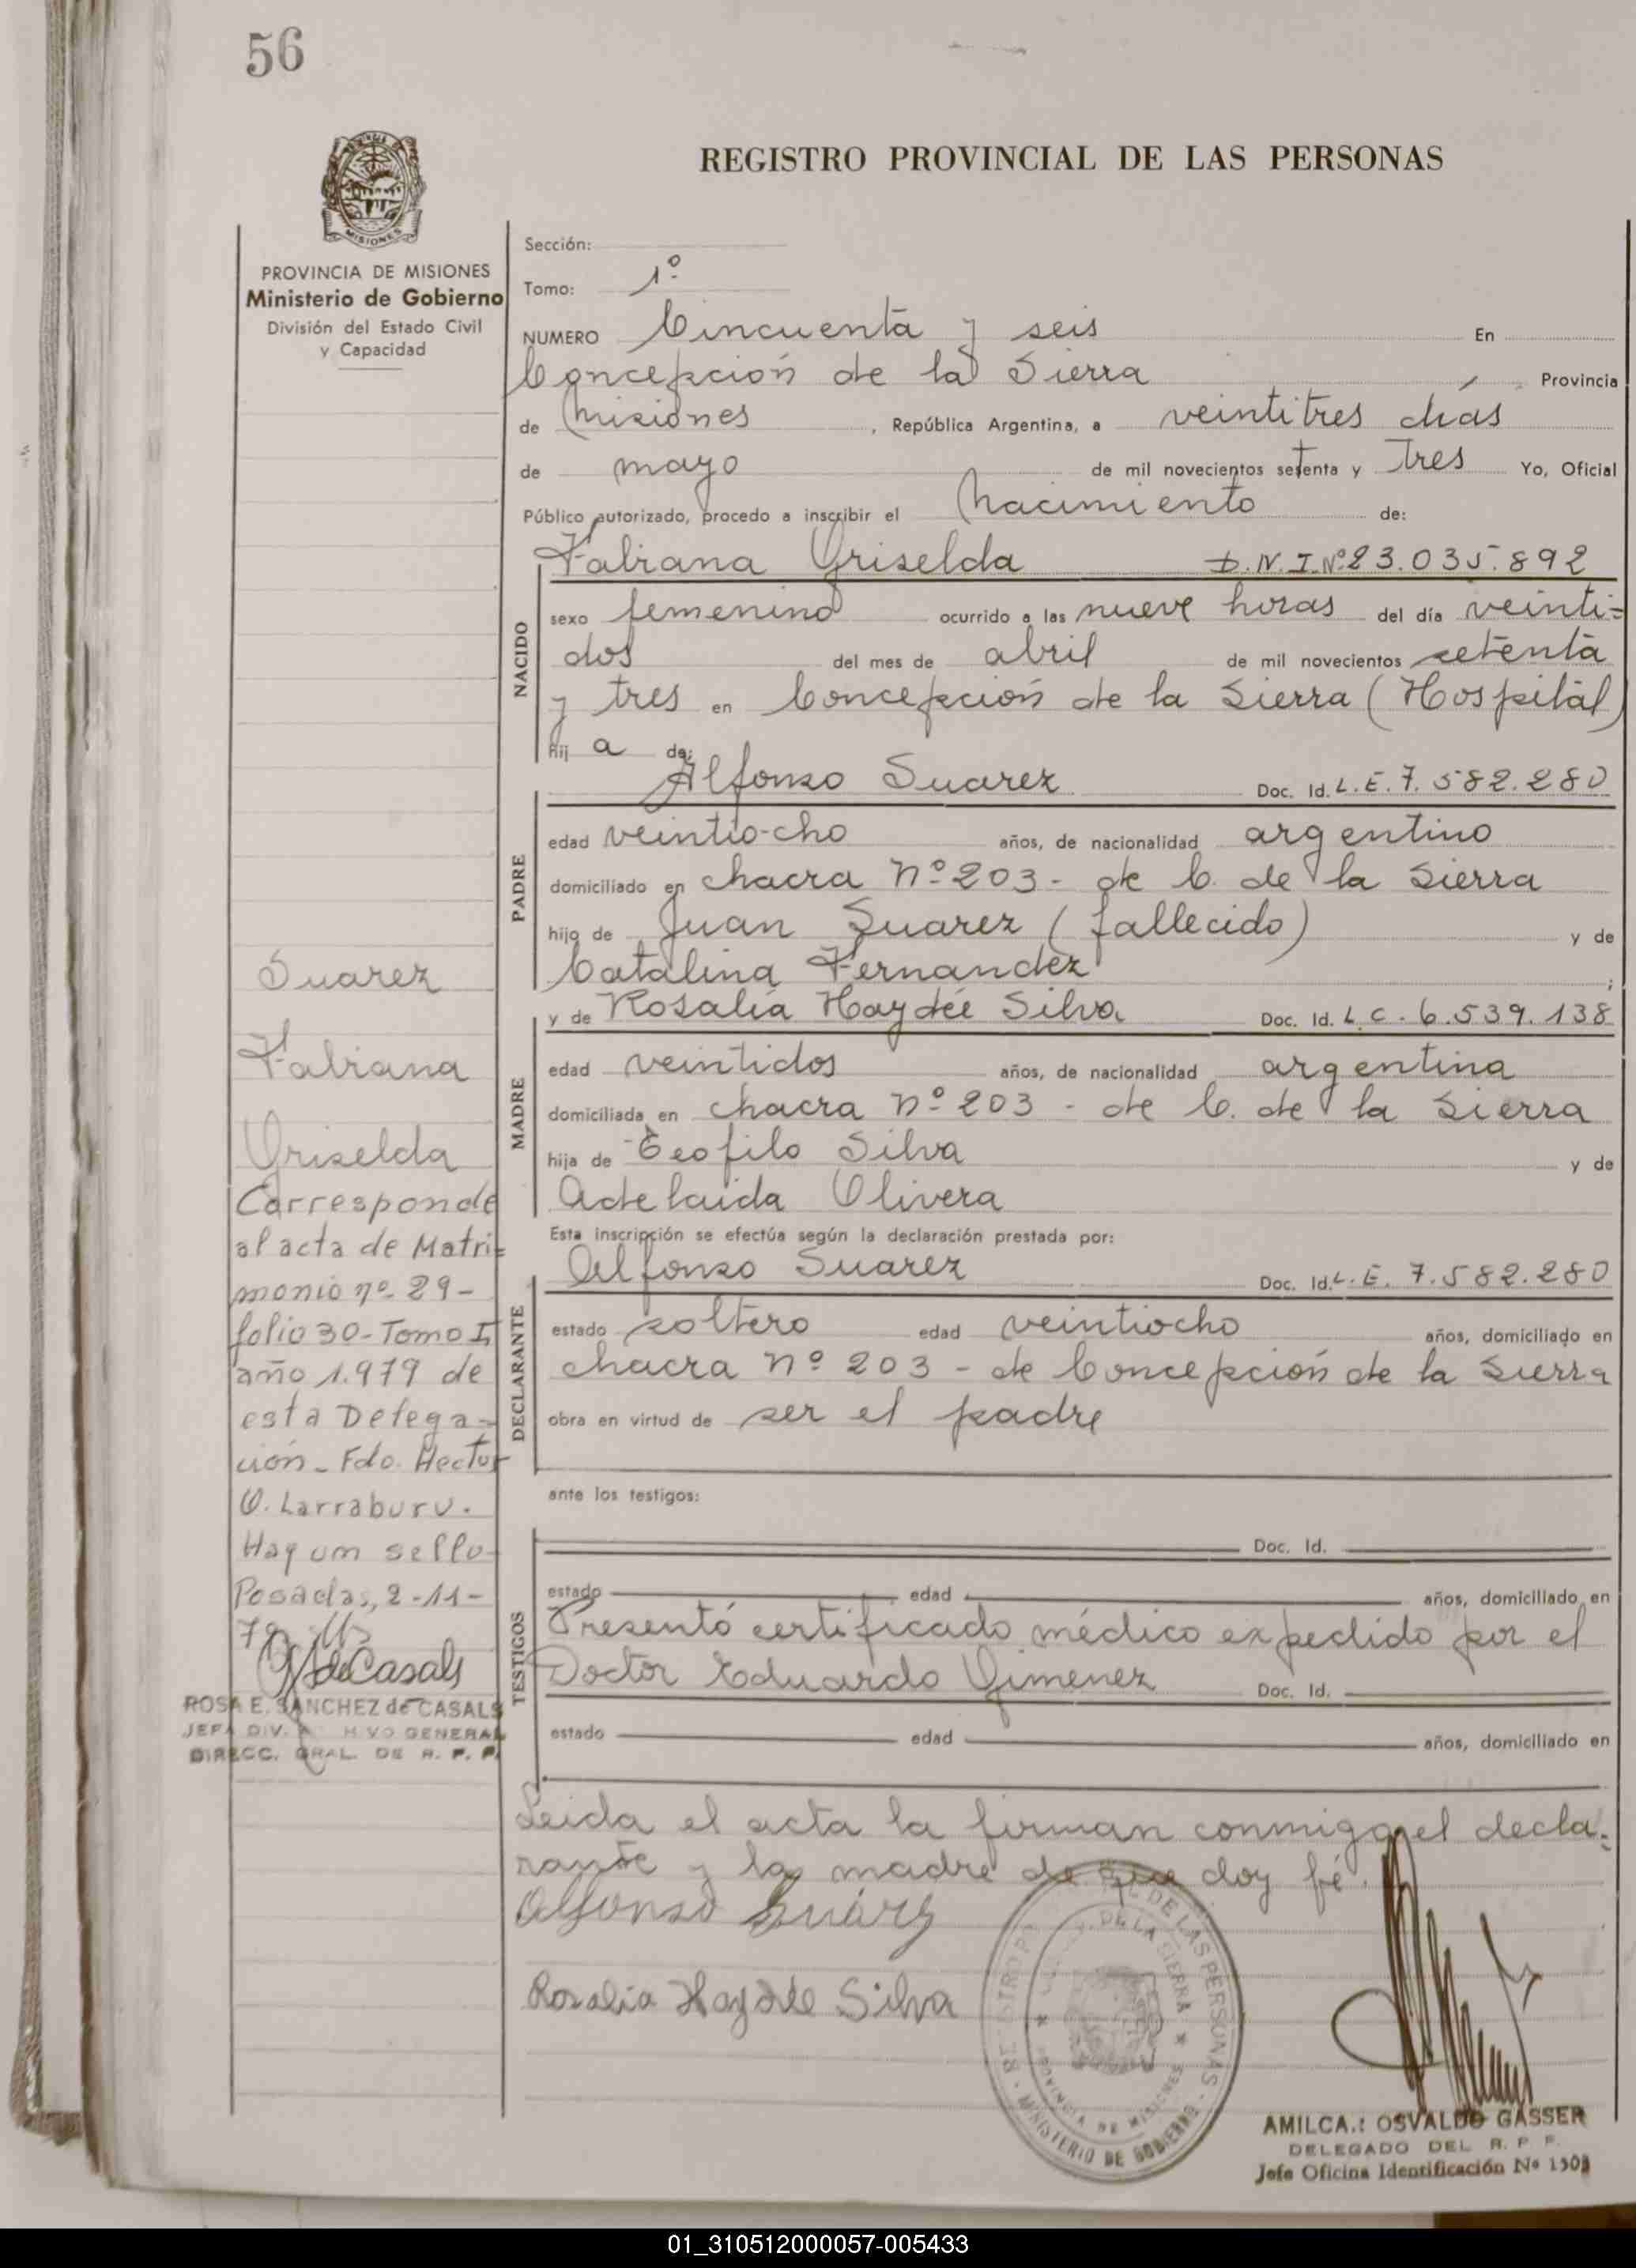 56
REGISTRO PROVINCIAL DE LAS PERSONAS
MISIONES
PROVINCIA DE MISIONES
Ministerio de Gobierno
División del Estado Civil
y Capacidad
Sección:
Tomo: 1º
NUMERO Cincuenta y seis En
Concepción de la Sierra, Provincia
de Misiones, República Argentina, a veintitres días
de mayo de mil novecientos setenta y Tres Yo, Oficial
Público autorizado, procedo a inscribir el Nacimiento de:
NACIDO
Fabiana Griselda D.N.I.Nº23.035.892
sexo femenino ocurrido a las nueve horas del día veinti=
dos del mes de abril de mil novecientos setenta
y tres en Concepción de la Sierra (Hospital)
hij a de:
PADRE
Alfonso Suarez Doc. Id. L.E. 7.582.280
edad veintio-cho años, de nacionalidad argentino
domiciliado en chacra nº 203 - de C. de la Sierra
hijo de Juan Suarez (fallecido) y de
Catalina Fernandez ;
MADRE
y de Rosalía Haydée Silva Doc. Id. L.C. 6.539.138
edad veintidos años, de nacionalidad argentina
domiciliada en chacra nº 203 - de C. de la Sierra
hija de Teofilo Silva y de
Adelaida Olivera
Esta inscripción se efectúa según la declaración prestada por:
DECLARANTE
Alfonso Suarez Doc. Id. L.E. 7.582.280
estado soltero edad veintiocho años, domiciliado en
chacra nº 203 - de Concepción de la Sierra
obra en virtud de ser el padre
ante los testigos:
TESTIGOS
Doc. Id.
estado edad años, domiciliado en
Presentó certificado médico expedido por el
Doctor Eduardo Gimenez Doc. Id.
estado edad años, domiciliado en
Leida el acta la firman conmigo el decla=
rante y la madre de que doy fé.
Alfonso Suárez
Rosalia Haydee Silva
DE LAS PERSONAS
DE LA SIERRA
PROVINCIA DE MISIONES
MINISTERIO DE GOBIERNO
AMILCA.: OSVALDO GASSER
DELEGADO DEL R. P. P.
Jefe Oficina Identificación Nº
Suarez
Fabiana
Griselda
Corresponde
al acta de Matri=
monio nº 29-
folio 30-Tomo I,
año 1.979 de
esta Delega=
ción - Fdo. Hector
O. Larraburu.
Hay un sello-
Posadas, 2-11-
79
de Casals
ROSA E. SANCHEZ de CASALS
JEFA DIV. ARCHIVO GENERAL
DIRECC. GRAL. DE R. P. P.
01_310512000057-005433